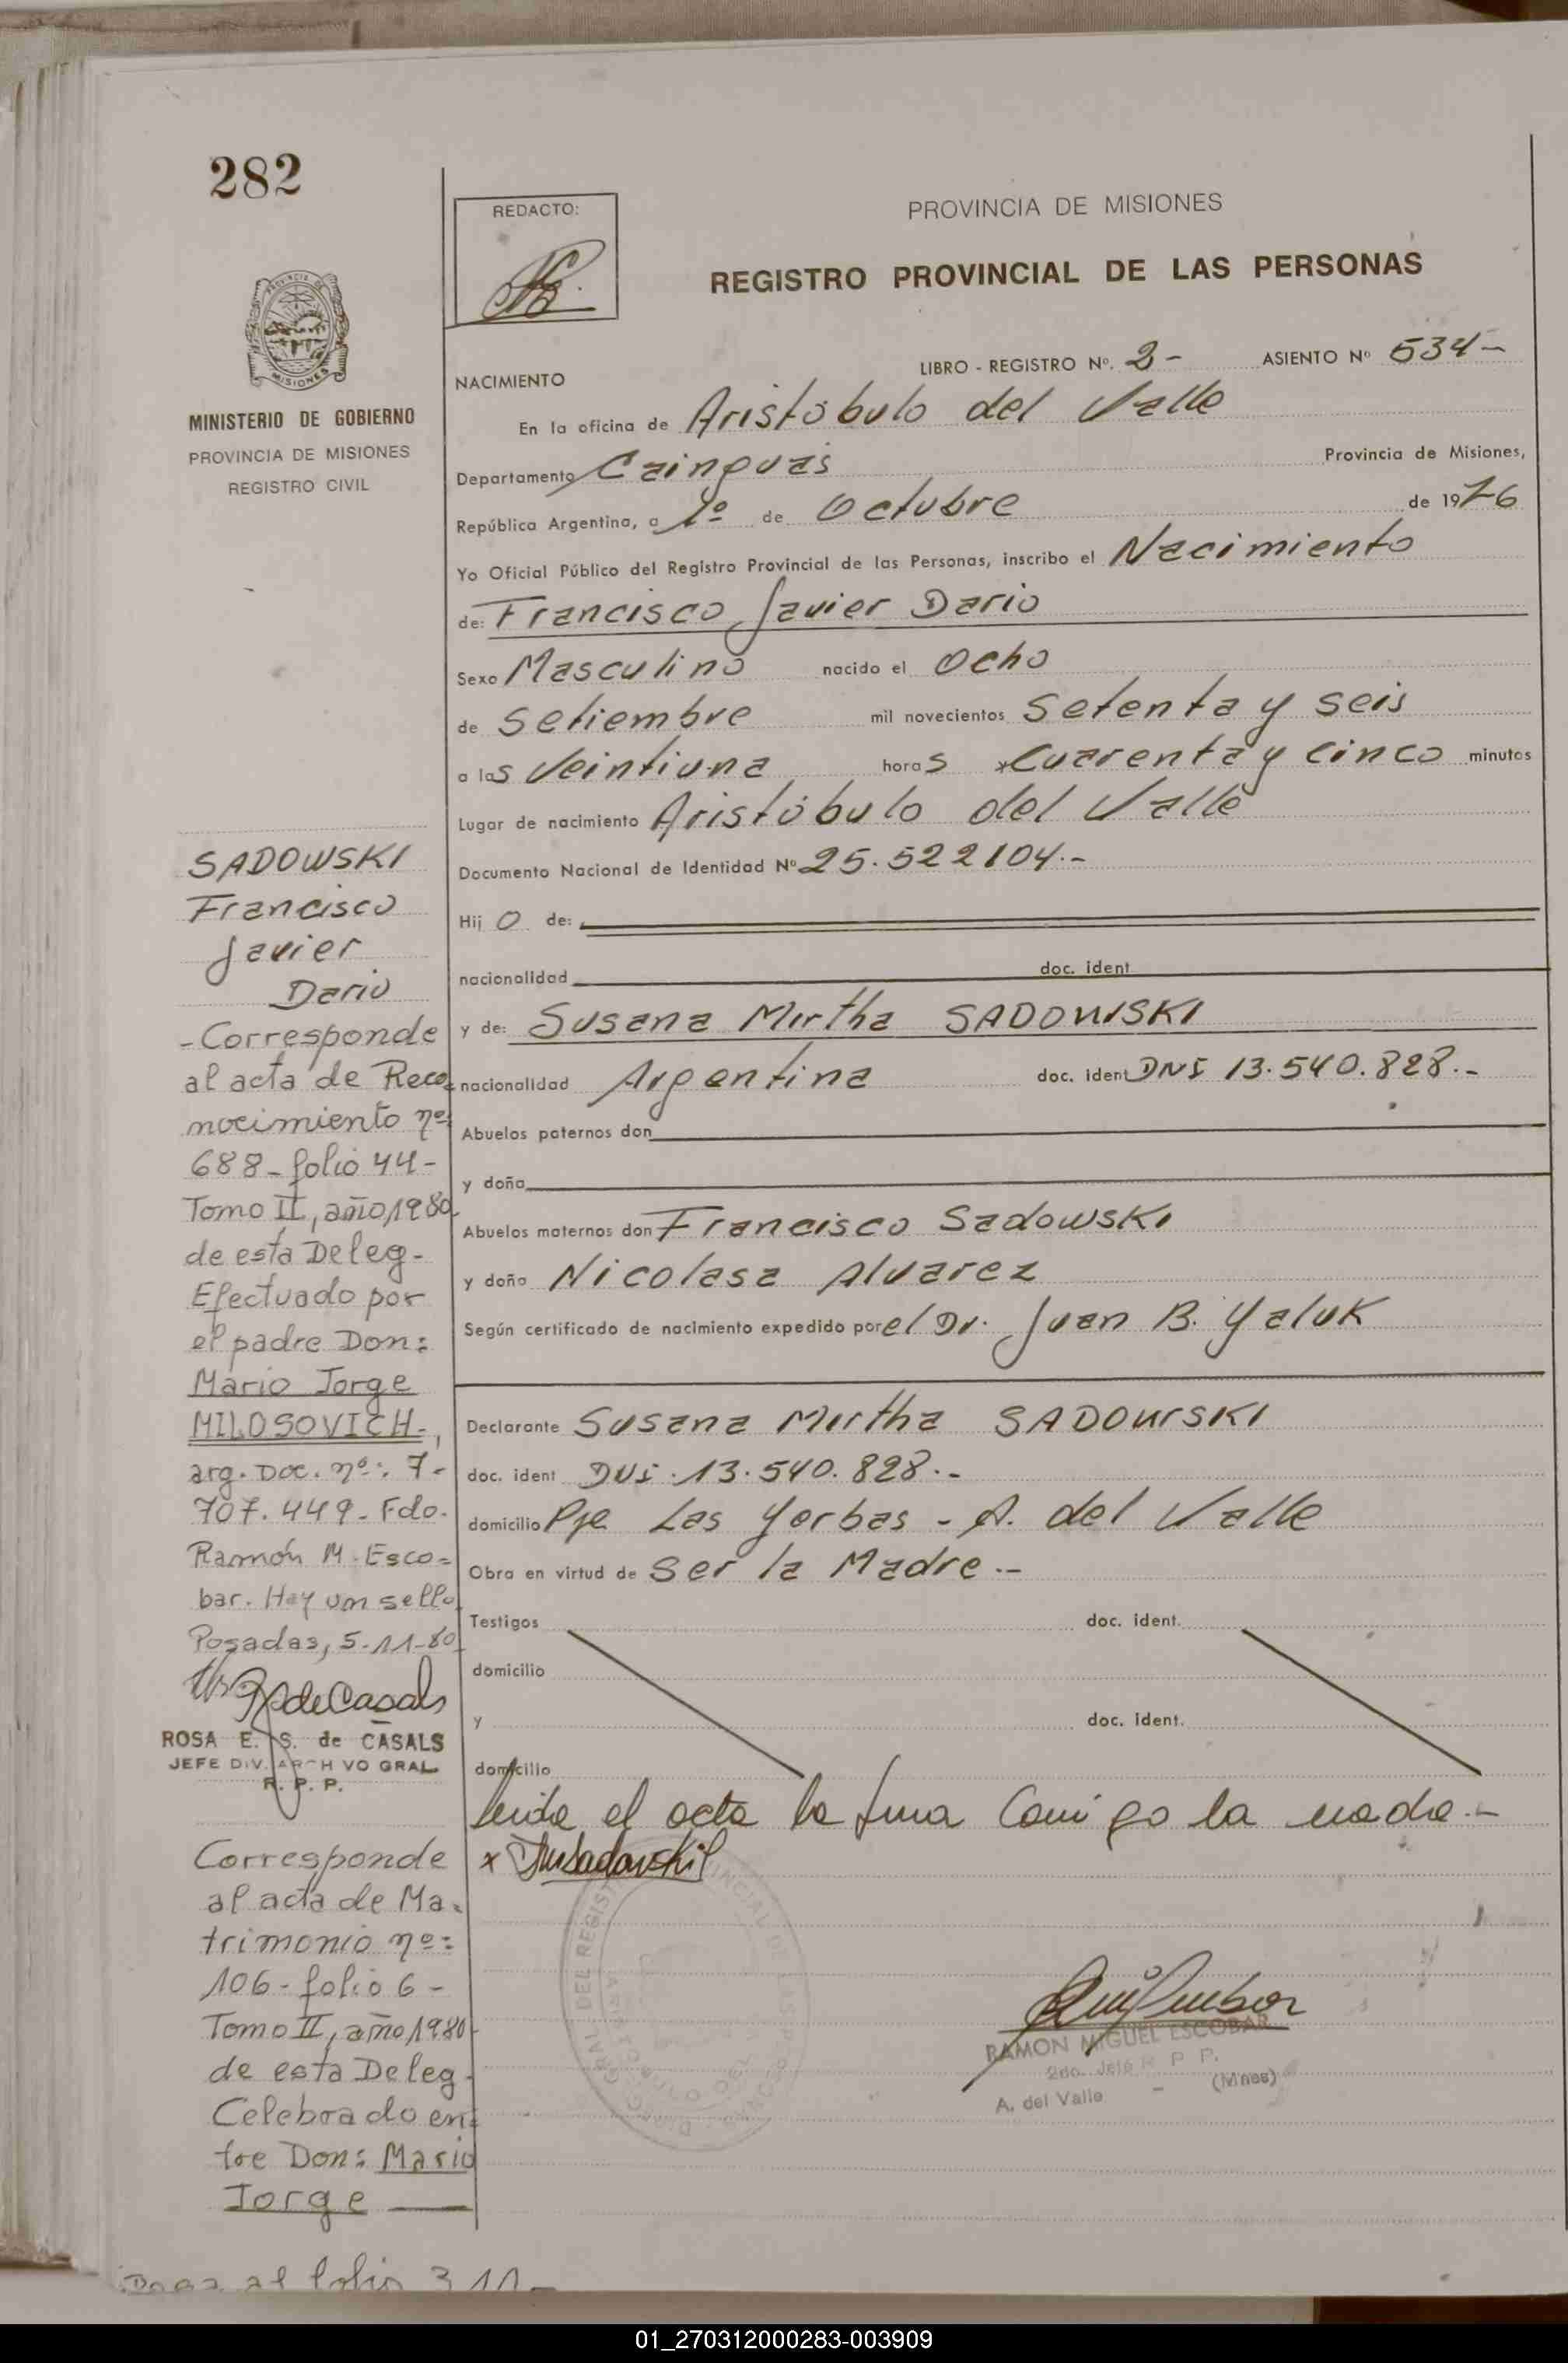 282
MINISTERIO DE GOBIERNO
PROVINCIA DE MISIONES
REGISTRO CIVIL
REDACTO:
PROVINCIA DE MISIONES
REGISTRO PROVINCIAL DE LAS PERSONAS
NACIMIENTO LIBRO - REGISTRO Nº. 2- ASIENTO Nº 534-
En la oficina de Aristóbulo del Valle
Departamento Cainguas Provincia de Misiones,
República Argentina, a 1º de Octubre de 1976
Yo Oficial Público del Registro Provincial de las Personas, inscribo el Nacimiento
de: Francisco Javier Dario
Sexo Masculino nacido el Ocho
de Setiembre mil novecientos Setenta y seis
a las Veintiuna horas Cuarenta y cinco minutos
Lugar de nacimiento Aristóbulo del Valle
Documento Nacional de Identidad Nº 25.522104.-
Hijo de:
nacionalidad doc. ident
y de: Susana Mirtha SADOWSKI
nacionalidad Argentina doc. ident DNI 13.540.828.-
Abuelos paternos don
y doña
Abuelos maternos don Francisco Sadowski
y doña Nicolasa Alvarez
Según certificado de nacimiento expedido por el Dr. Juan B. Yaluk
Declarante Susana Mirtha SADOWSKI
doc. ident DNI.13.540.828.-
domicilio Pje Las Yerbas - A. del Valle
Obra en virtud de Ser la Madre.-
Testigos doc. ident.
domicilio
y doc. ident.
domicilio
leida el acta la firma Conmigo la madre.-
RAMON MIGUEL ESCOBAR
2do. Jefe R P P.
A. del Valle - (Mnes)
SADOWSKI
Francisco
Javier
Dario
-Corresponde
al acta de Reco
nocimiento nº:
688-folio 44-
Tomo II, año 1980
de esta Deleg-
Efectuado por
el padre Don:
Mario Jorge
MILOSOVICH-,
arg. Doc. nº: 7-
707.449- Fdo.
Ramón M. Esco=
bar. Hay un sello
Posadas, 5-11-80
ROSA E. S. de CASALS
JEFE DIV. ARCHIVO GRAL
R. P. P.
Corresponde
al acta de Ma=
trimonio nº:
106-folio 6-
Tomo II, año 1980-
de esta Deleg.
Celebrado en=
tre Don: Mario
Jorge
Pasa al folio 311-
01_270312000283-003909